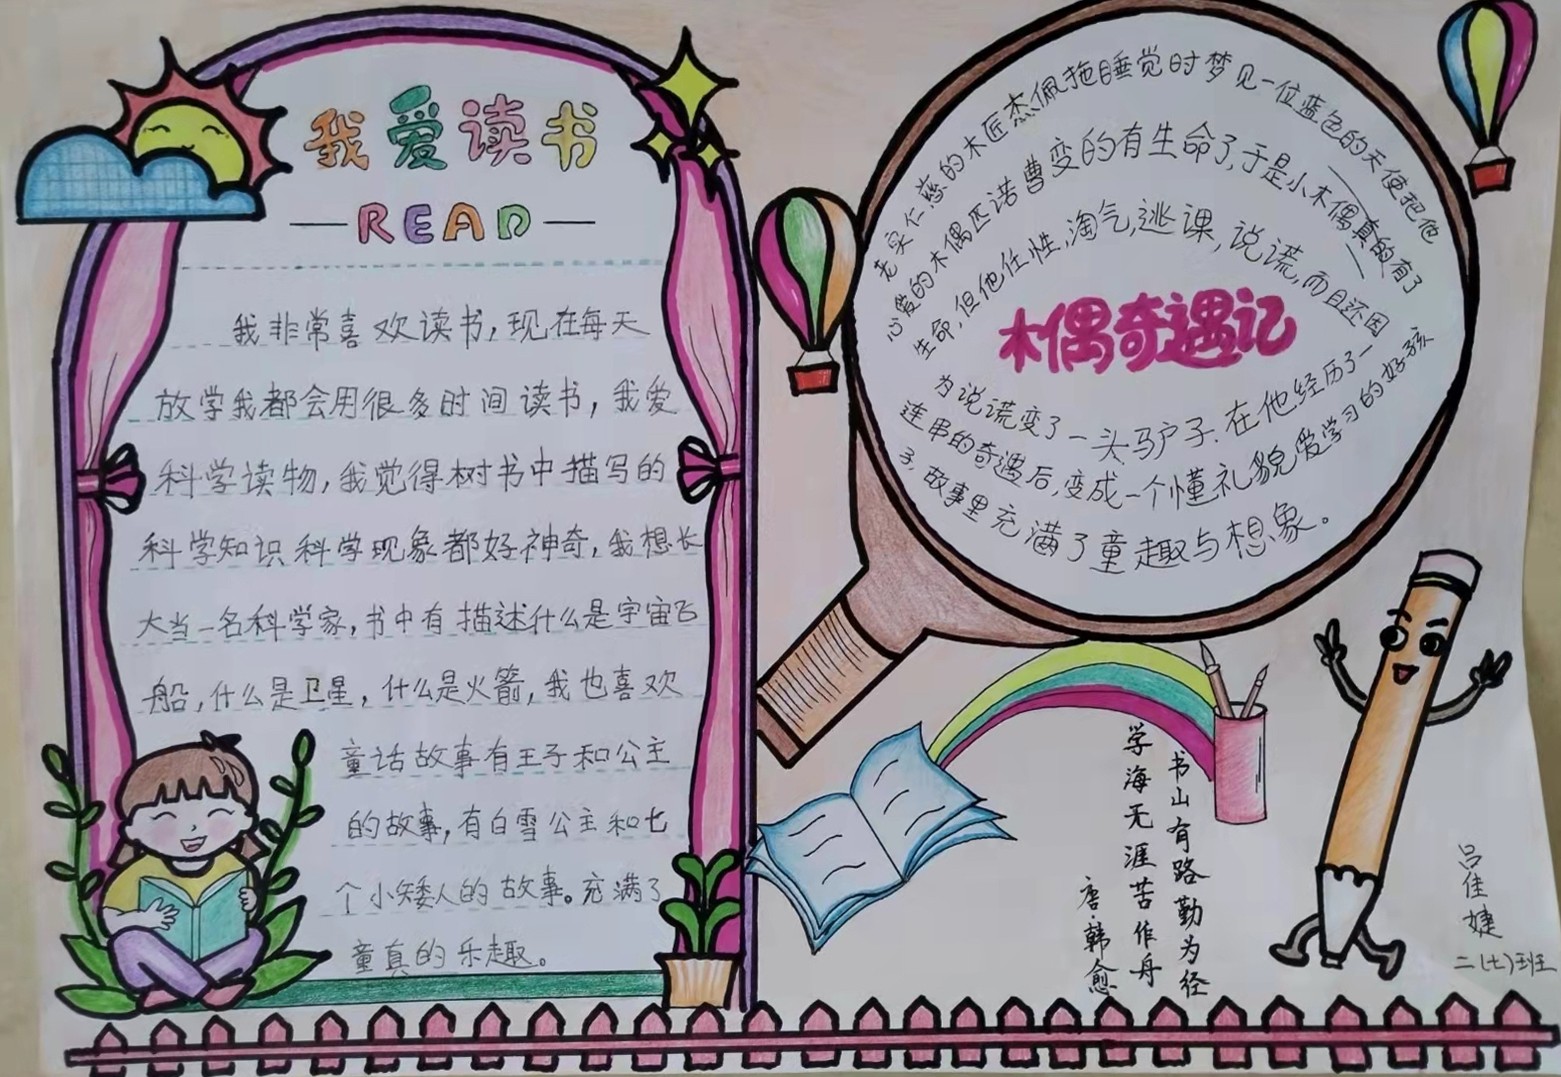 我爱读书
READ
我非常喜欢读书，现在每天
放学我都会用很多时间读书，我爱
科学读物，我觉得树书中描写的
科学知识科学现象都好神奇，我想长
大当一名科学家，书中有描述什么是宇宙飞
船，什么是卫星，什么是火箭，我也喜欢
童话故事有王子和公主
的故事，有白雪公主和七
个小矮人的故事。充满了
童真的乐趣。
老实仁慈的木匠杰佩拖睡觉时梦见一位蓝色的天使把他
心爱的木偶匹诺曹变的有生命了，于是小木偶真的有了
生命，但他任性，淘气，逃课，说谎，而且还因
木偶奇遇记
为说谎变了一头马户子.在他经历了一
连串的奇遇后，变成一个懂礼貌爱学习的好孩
子，故事里充满了童趣与想象。
书山有路勤为径
学海无涯苦作舟
唐·韩愈
吕佳婕
二(七)班